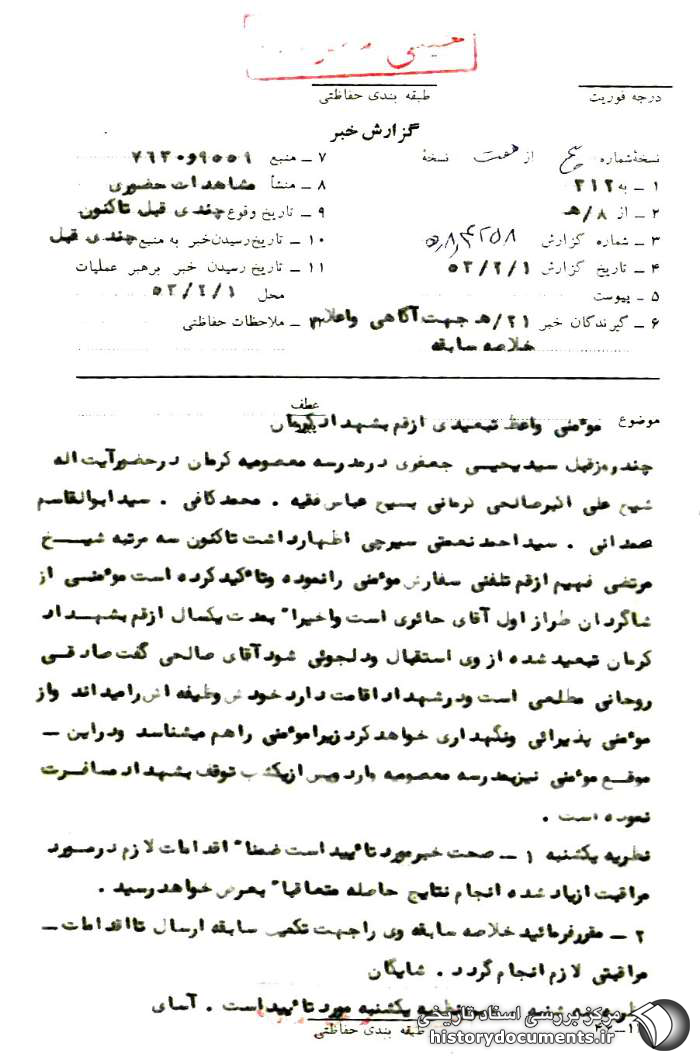 درجه فوریت
طبقه بندی حفاظتی
گزارش خبر
نسخهٔ شماره از هفت نسخهٔ
۱ ـ به ۳۱۲
۲ ـ از ۸/هـ
۳ ـ شماره گزارش
۴ ـ تاریخ گزارش ۵۳/۲/۱
۵ ـ پیوست
۶ ـ گیرندگان خبر ۲۱/هـ جهت آگاهی واعلام
خلاصه سابقه
۷ ـ منبع ۹۵۵۹و۷۶۳۰
۸ ـ منشأ مشاهدات حضوری
۹ ـ تاریخ وقوع چندی قبل تاکنون
۱۰ ـ تاریخ رسیدن خبر به منبع چندی قبل
۱۱ ـ تاریخ رسیدن خبر برهبر عملیات
محل ۵۳/۲/۱
ـ ملاحظات حفاظتی
موضوع مؤمنی واعظ تبعیدی ازقم بشهداد کرمان
عطف
چندروز قبل سیدیحیی جعفری درمدرسه معصومیه کرمان درحضور آیت اله
شیخ علی اکبرصالحی کرمانی شیخ عباس فقیه . محمدکافی . سیدابوالقاسم
صمدانی . سیداحمد نعمتی سیرچی اظهارداشت تاکنون سه مرتبه شیخ
مرتضی فهیم ازقم تلفنی سفارش مؤمنی رانموده وتاکیدکرده است مؤمنی از
شاگردان طراز اول آقای حائری است واخیراً بمدت یکسال ازقم بشهداد
کرمان تبعید شده از وی استقبال ودلجوئی شود آقای صالحی گفت صادقی
روحانی مطلعی است ودرشهداد اقامت دارد خودش وظیفه اش رامیداند واز
مؤمنی پذیرائی ونگهداری خواهدکرد زیرا مؤمنی راهم میشناسد ودراین ـ
موقع مؤمنی نیز بمدرسه معصومیه وارد وپس ازیکشب توقف بشهداد مسافرت
نموده است .
نظریه یکشنبه ۱ ـ صحت خبرمورد تائیداست ضمناً اقدامات لازم درمورد
مراقبت ازیاد شده انجام نتایج حاصله متعاقباً بعرض خواهد رسید .
۲ ـ مقررفرمائید خلاصه سابقه وی راجهت تکمیل سابقه ارسال تااقدامات ـ
مراقبتی لازم انجام گردد . شایگان
نظریه یکشنبه مورد تائیداست . آسای
طبقه بندی حفاظتی
مرکز بررسی اسناد تاریخی
historydocuments.ir